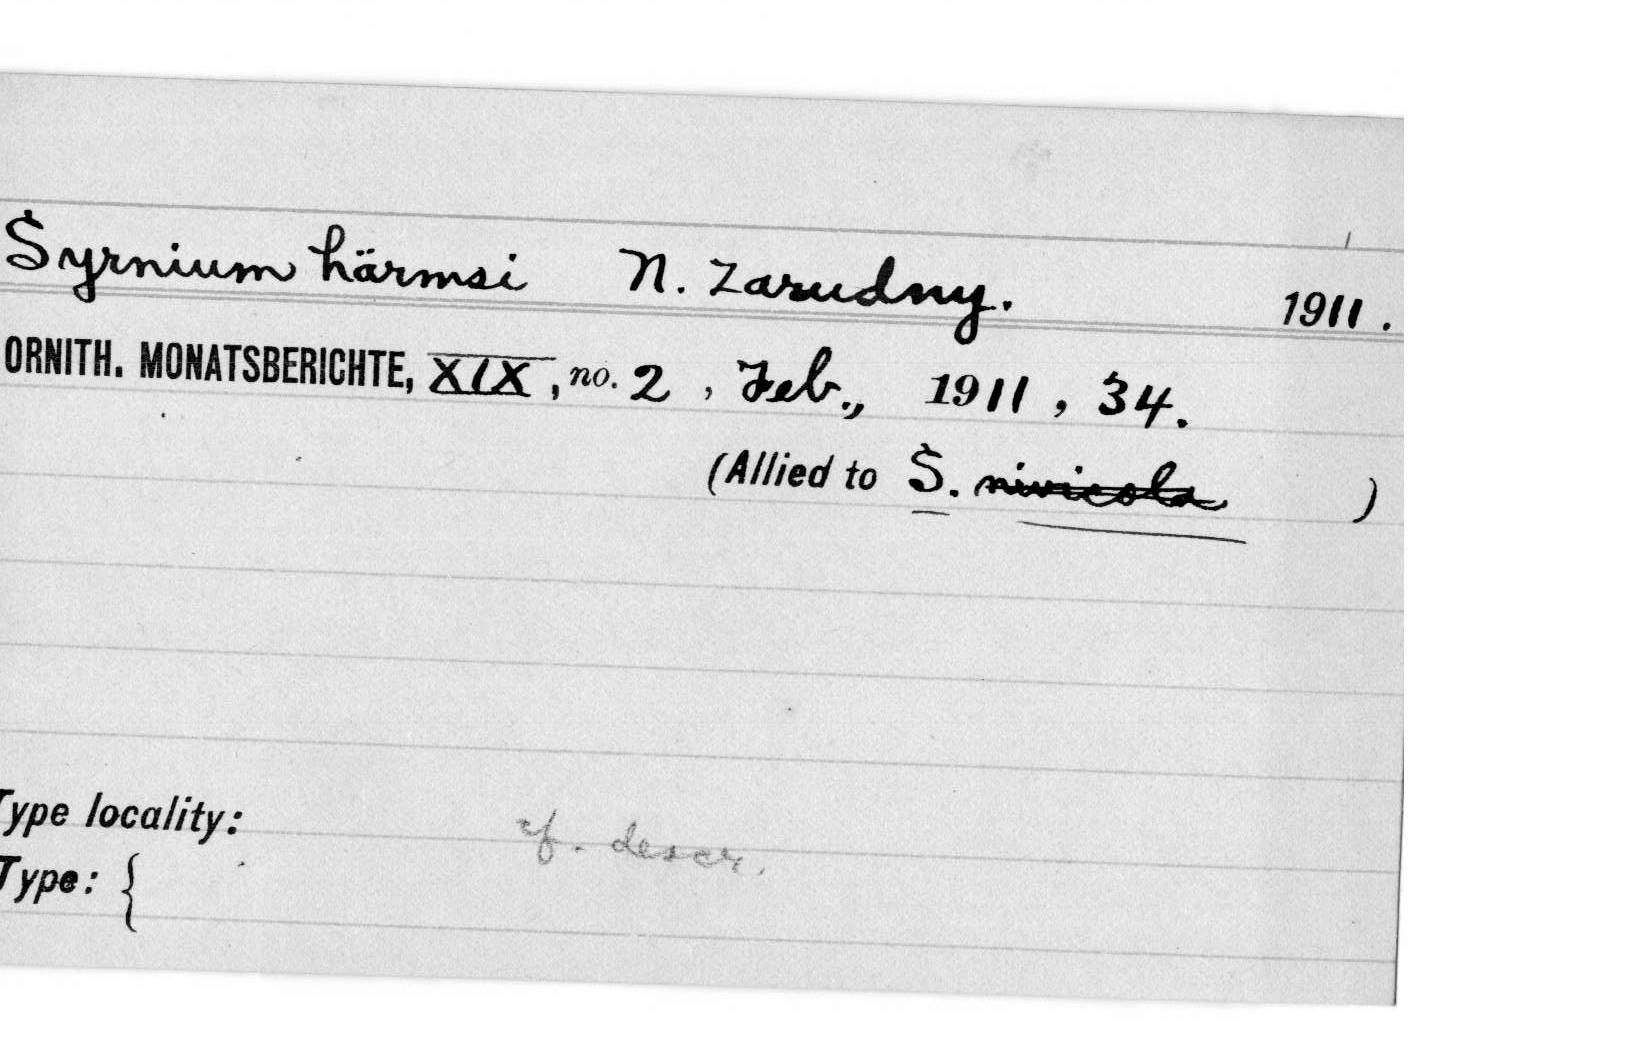 Syrnium härmsi N. Zarudny. 1911.
ORNITH. MONATSBERICHTE, XIX, no. 2, Feb., 1911, 34.
(Allied to S. nivicola )
Type locality: cf. descr.
Type: {